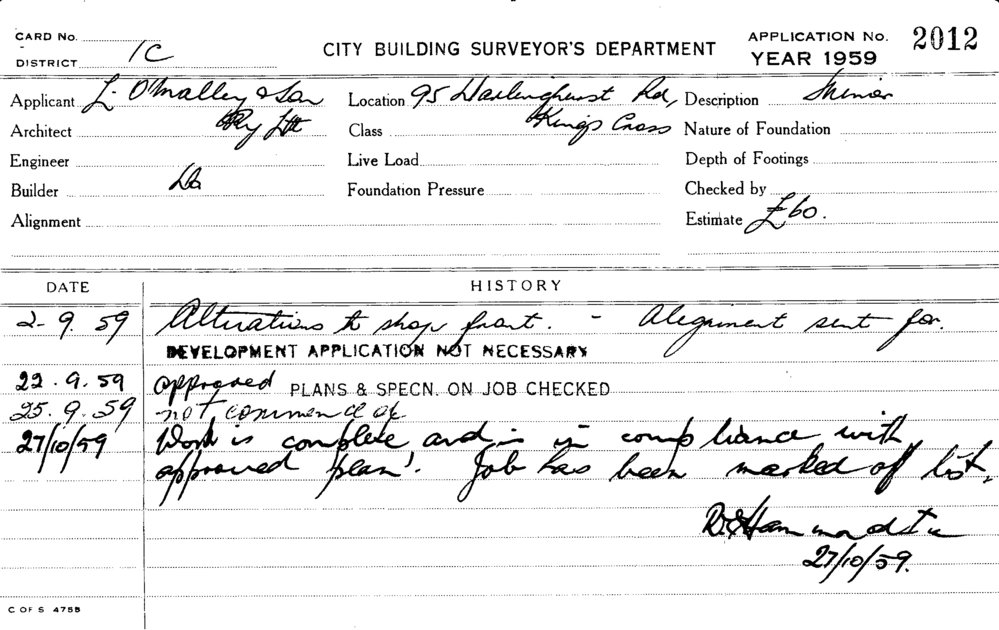 CARD No.
DISTRICT 1C
CITY BUILDING SURVEYOR'S DEPARTMENT
APPLICATION No. 2012
YEAR 1959
Applicant L. O'Malley & Son
Pty Ltd
Location 95 Darlinghurst Rd,
Kings Cross
Description Minor
Architect
Class
Nature of Foundation
Engineer
Live Load
Depth of Footings
Builder Do
Foundation Pressure
Checked by
Alignment
Estimate £60.
DATE HISTORY
2-9.59 Alterations to shop front. - Alignment sent for.
DEVELOPMENT APPLICATION NOT NECESSARY
22.9.59 approved PLANS & SPECN. ON JOB CHECKED
25.9.59 not commenced
27/10/59 Work is complete and is in compliance with
approved plan. Job has been marked of list.
27/10/59.
C OF S 475B